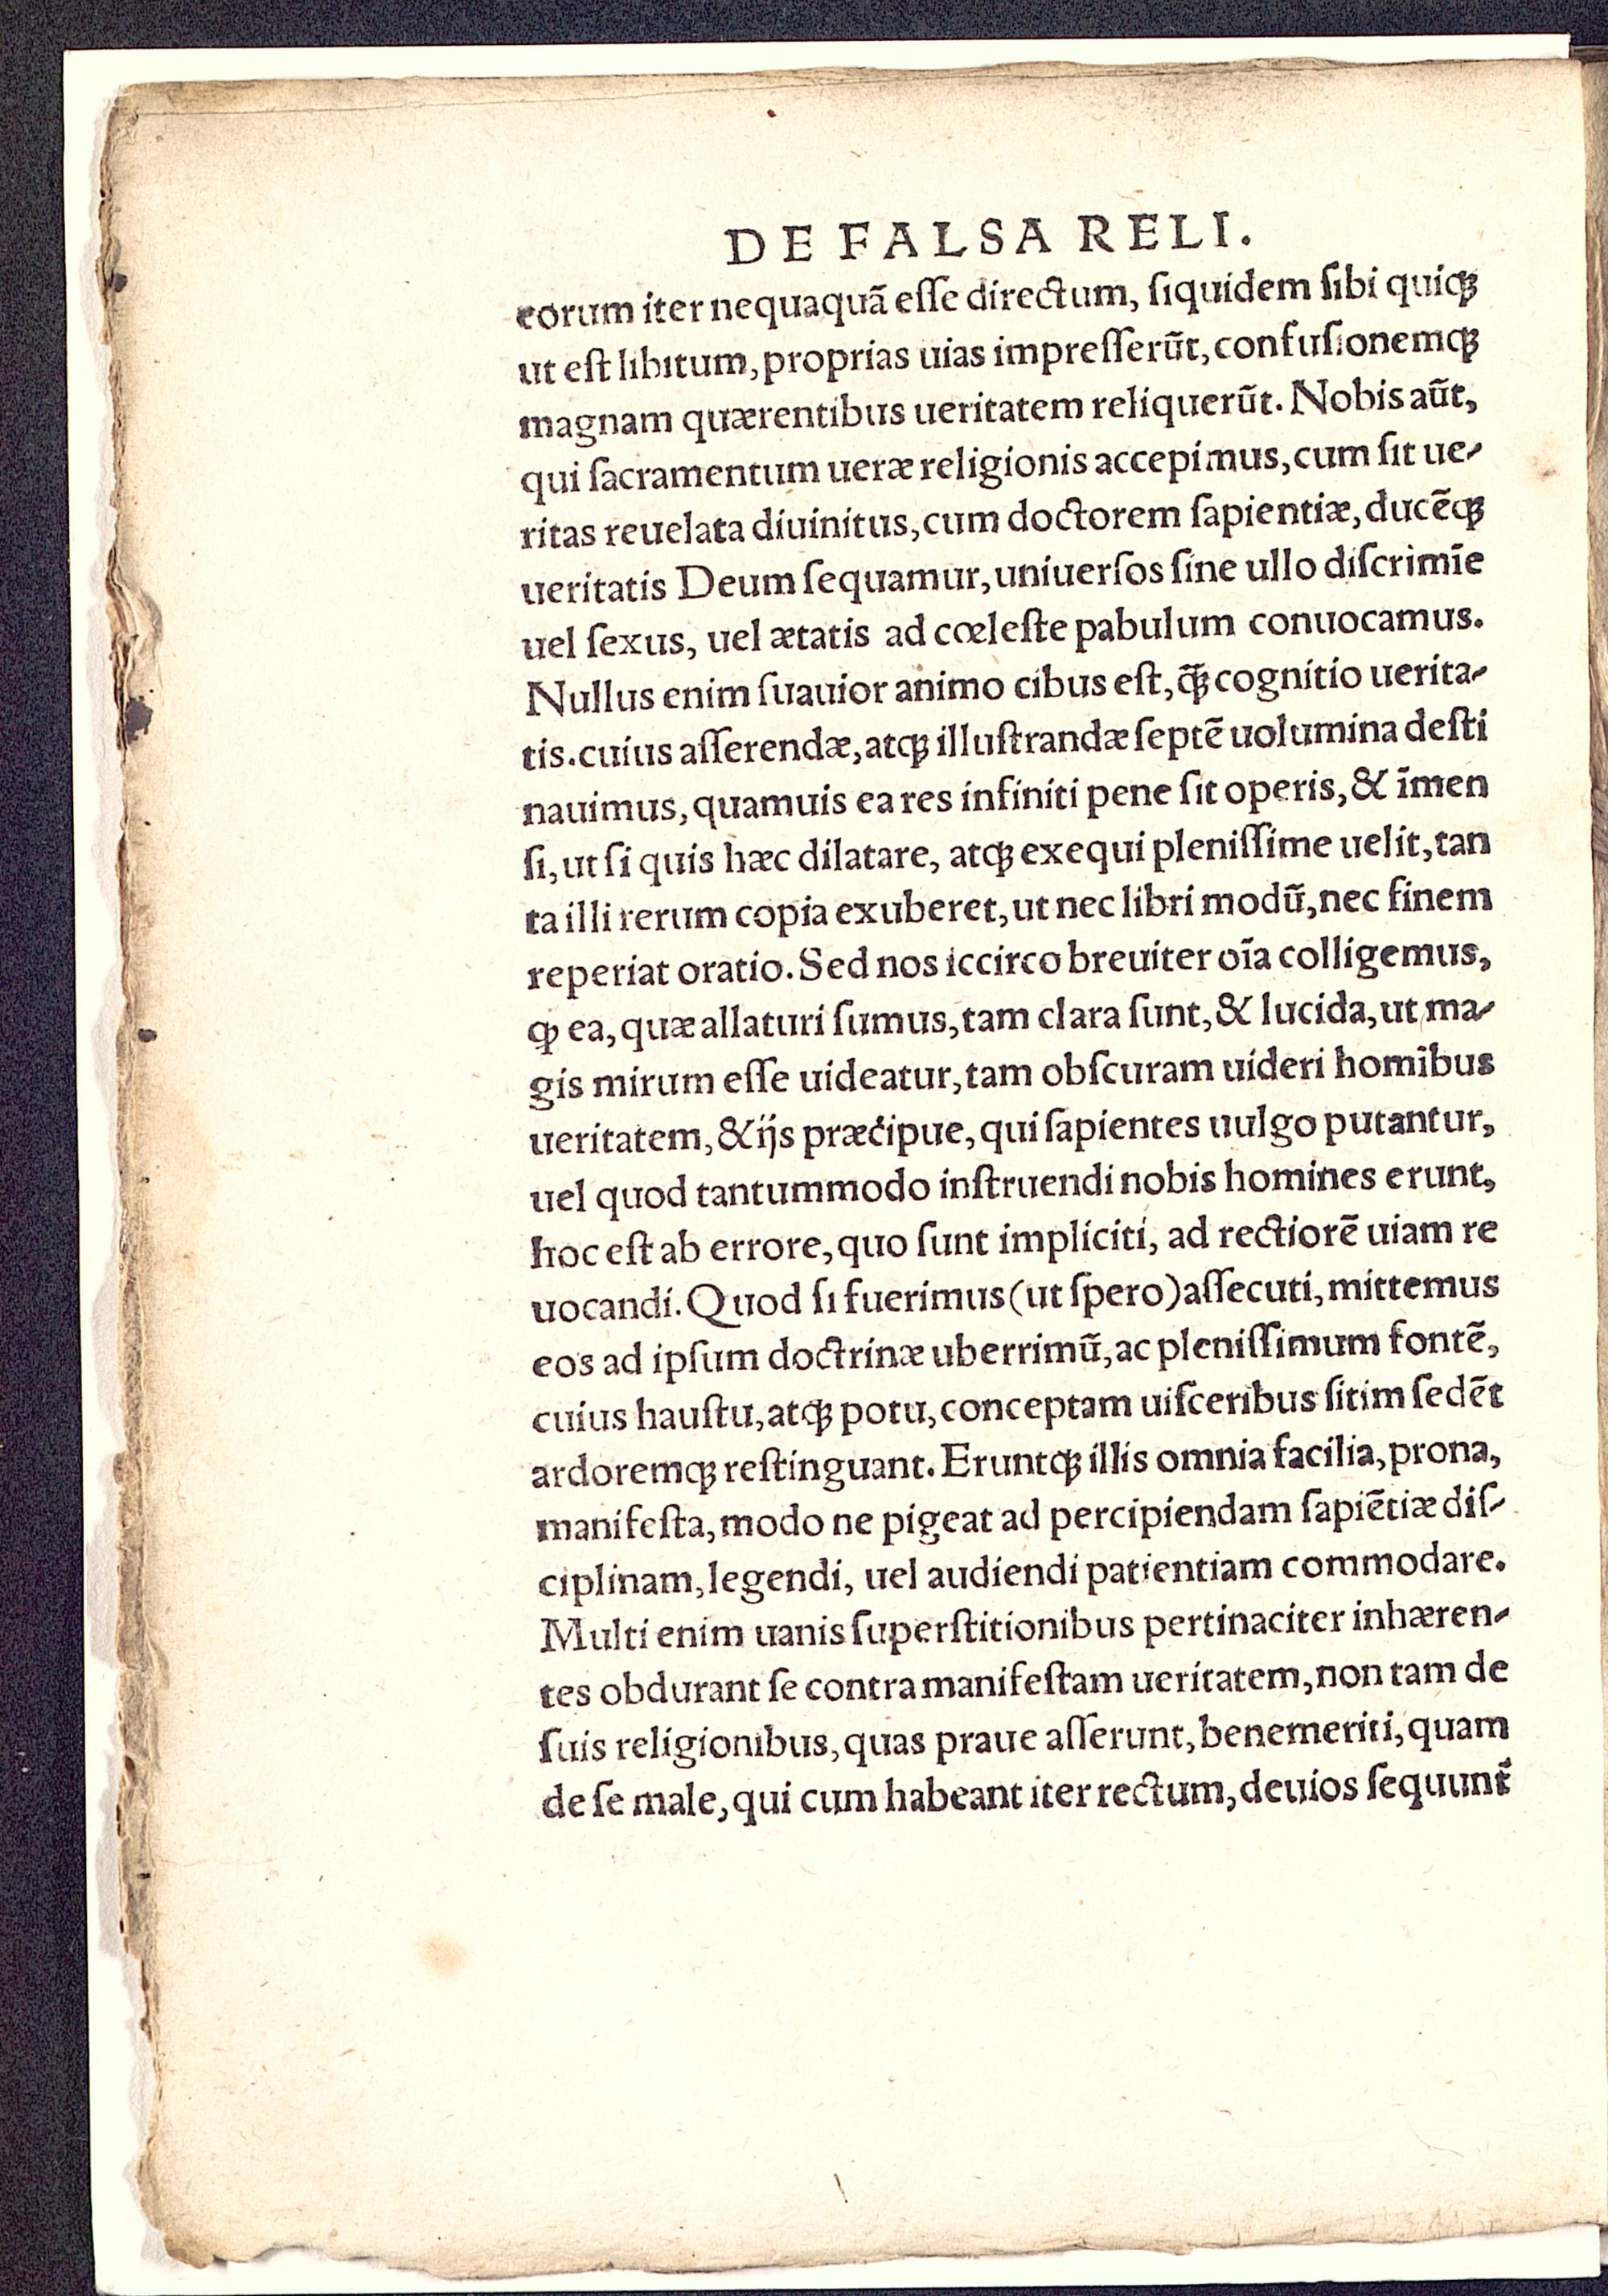 DE FALSA RELI.
eorum iter nequaquã eſſe directum, ſiquidem ſibi quiqꝫ
ut eſt libitum, proprias uias impreſſerũt, confuſionemqꝫ
magnam quærentibus ueritatem reliquerũt. Nobis aũt,
qui ſacramentum ueræ religionis accepimus, cum ſit ue-
ritas reuelata diuinitus, cum doctorem ſapientiæ, ducẽqꝫ
ueritatis Deum ſequamur, uniuerſos ſine ullo diſcrimĩe
uel ſexus, uel ætatis ad cœleſte pabulum conuocamus.
Nullus enim ſuauior animo cibus eſt, q̃ꝫ cognitio uerita-
tis. cuius aſſerendæ, atqꝫ illuſtrandæ ſeptẽ uolumina deſti
nauimus, quamuis ea res infiniti pene ſit operis, & ĩmen
ſi, ut ſi quis hæc dilatare, atqꝫ exequi pleniſſime uelit, tan
ta illi rerum copia exuberet, ut nec libri modũ, nec finem
reperiat oratio. Sed nos iccirco breuiter oĩa colligemus,
ꝙ ea, quæ allaturi ſumus, tam clara ſunt, & lucida, ut ma-
gis mirum eſſe uideatur, tam obſcuram uideri homĩbus
ueritatem, & ijs præcipue, qui ſapientes uulgo putantur,
uel quod tantummodo inſtruendi nobis homines erunt,
hoc eſt ab errore, quo ſunt impliciti, ad rectiorẽ uiam re
uocandi. Quod ſi fuerimus (ut ſpero) aſſecuti, mittemus
eos ad ipſum doctrinæ uberrimũ, ac pleniſſimum fontẽ,
cuius hauſtu, atqꝫ potu, conceptam uiſceribus ſitim ſedẽt
ardoremqꝫ reſtinguant. Eruntqꝫ illis omnia facilia, prona,
manifeſta, modo ne pigeat ad percipiendam ſapiẽtiæ diſ-
ciplinam, legendi, uel audiendi patientiam commodare.
Multi enim uanis ſuperſtitionibus pertinaciter inhæren-
tes obdurant ſe contra manifeſtam ueritatem, non tam de
ſuis religionibus, quas praue aſſerunt, benemeriti, quam
de ſe male, qui cum habeant iter rectum, deuios ſequunt᷑